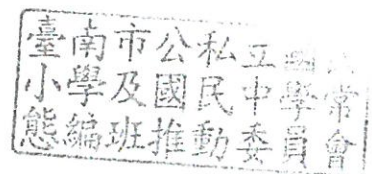 臺南市公私立國
小學及國民中學常
態編班推動委員會